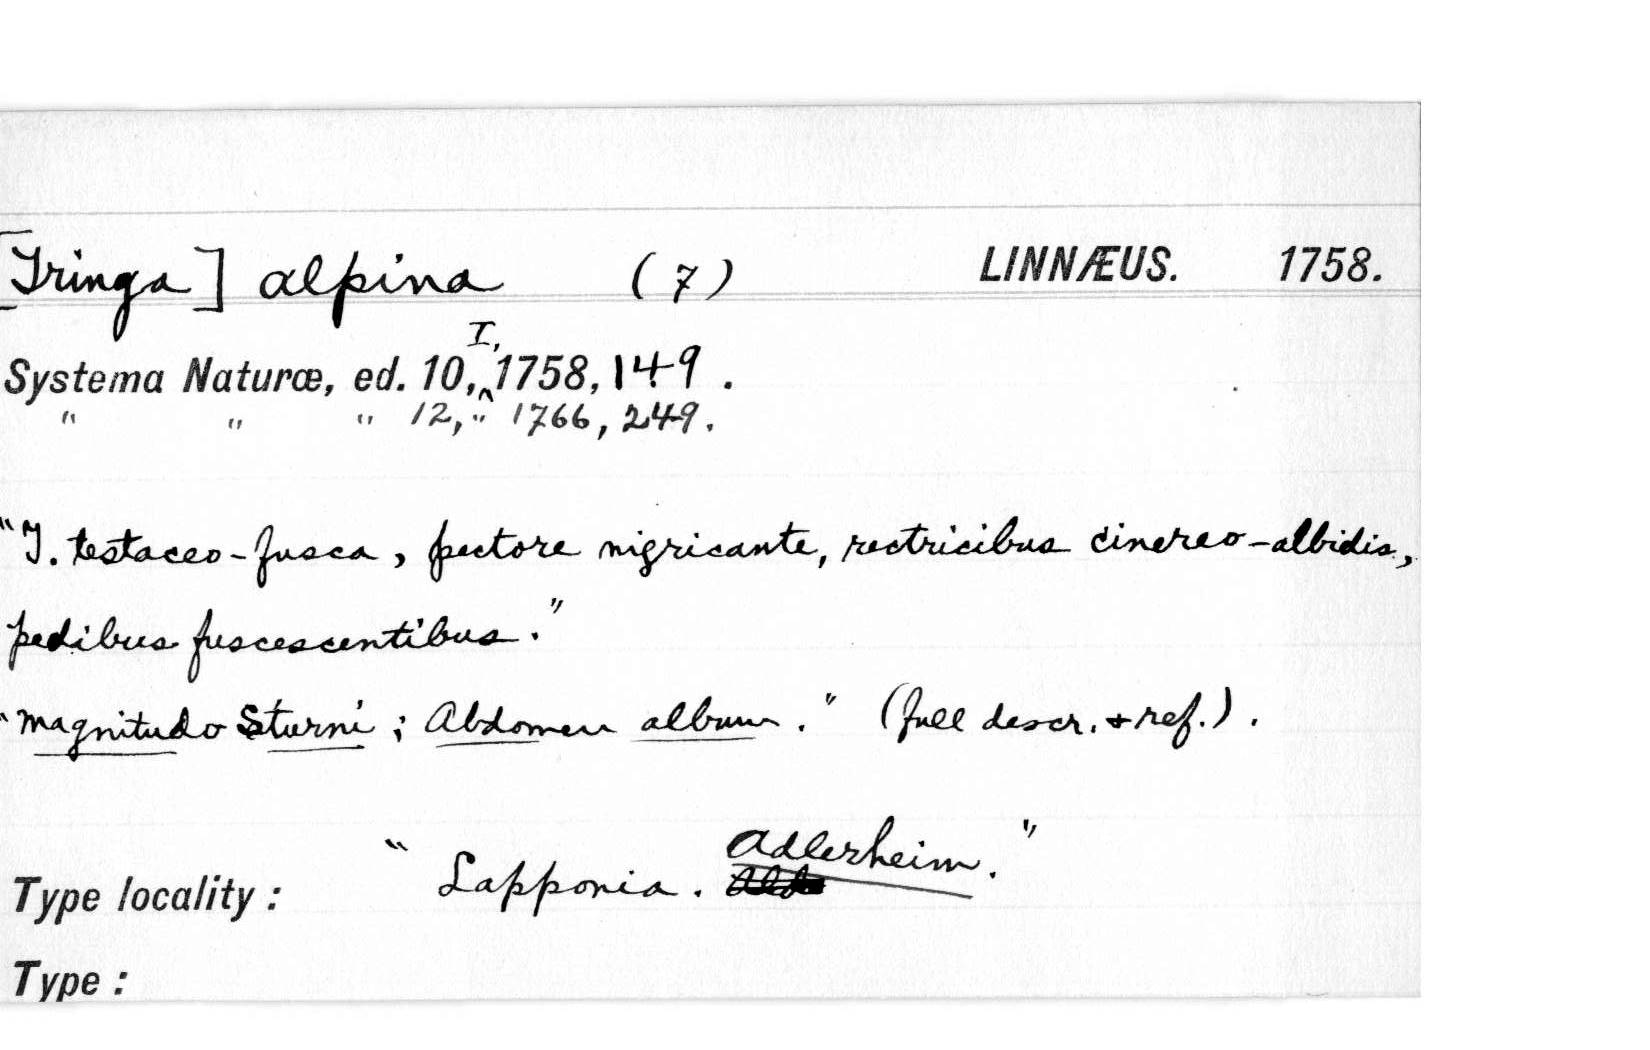 [Tringa] alpina (7) LINNÆUS. 1758.
Systema Naturæ, ed. 10, I, 1758, 149.
" " " 12, " 1766, 249.
"T. testaceo-fusca, pectore nigricante, rectricibus cinereo-albidis,
pedibus fuscescentibus."
"Magnitudo Sturni; Abdomen album." (full descr. + ref.).
Type locality: "Lapponia. Adlerheim."
Type: